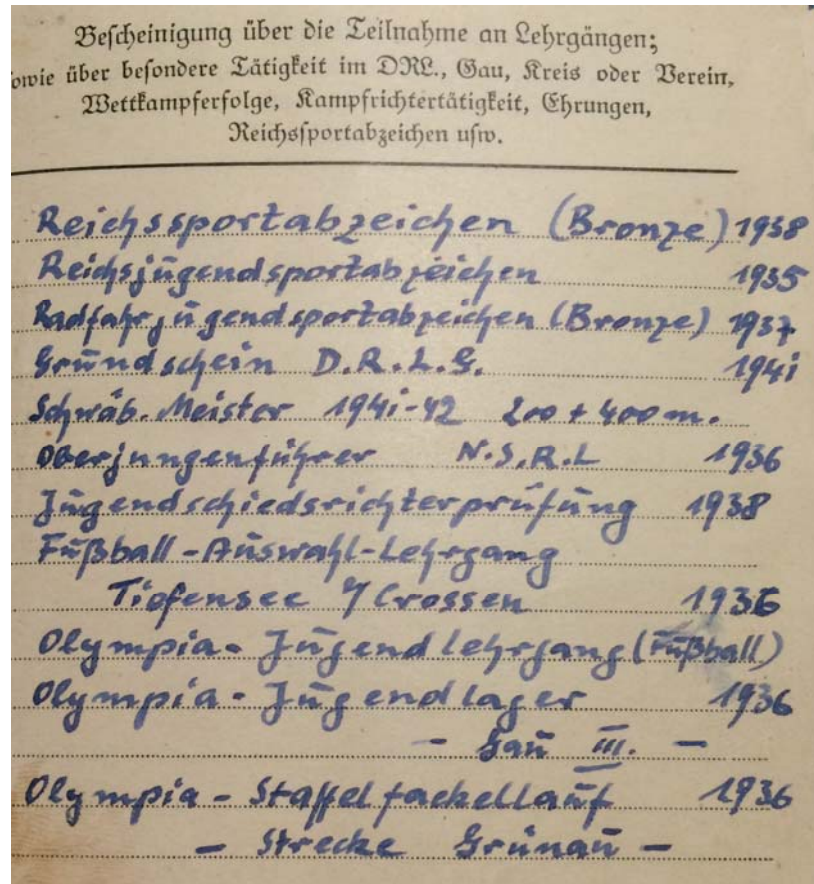 Bescheinigung über die Teilnahme an Lehrgängen;
sowie über besondere Tätigkeit im DRL., Gau, Kreis oder Verein,
Wettkampferfolge, Kampfrichtertätigkeit, Ehrungen,
Reichssportabzeichen usw.
Reichssportabzeichen (Bronze) 1938
Reichsjugendsportabzeichen 1935
Radfahrjugendsportabzeichen (Bronze) 1937
Grundschein D.R.L.G. 1941
Schwäb. Meister 1941-42 200 + 400 m.
Oberjungenführer N.S.R.L 1936
Jugendschiedsrichterprüfung 1938
Fußball-Auswahl-Lehrgang
Tiefensee Crossen 1936
Olympia-Jugendlehrgang (Fußball)
Olympia-Jugendlager 1936
- Gau III. -
Olympia-Staffelfackellauf 1936
- Strecke Grünau -